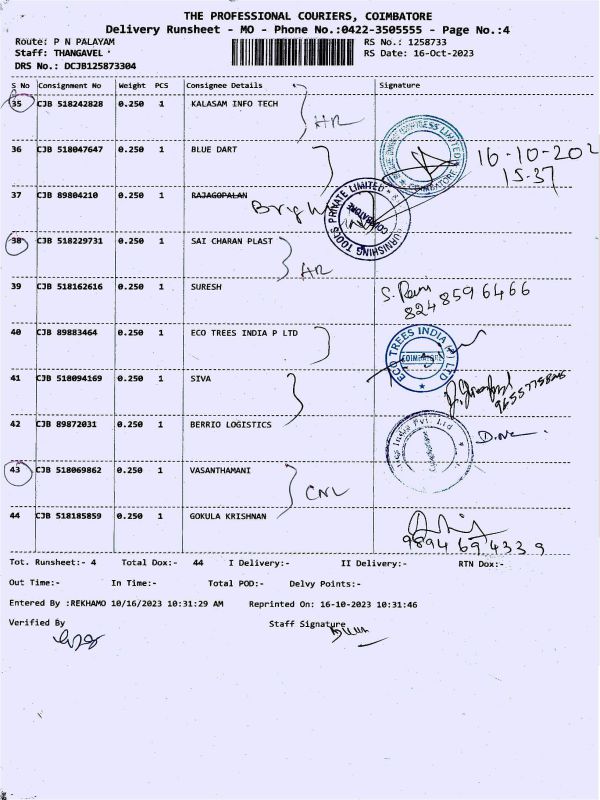 THE PROFESSIONAL COURIERS, COIMBATORE
Delivery Runsheet - MO - Phone No.:0422-3505555 - Page No.:4
Route: P N PALAYAM RS No.: 1258733
Staff: THANGAVEL RS Date: 16-Oct-2023
DRS No.: DCJB125873304
S No Consignment No Weight PCS Consignee Details Signature
35 CJB 518242828 0.250 1 KALASAM INFO TECH
HR
36 CJB 518047647 0.250 1 BLUE DART
COIMBATORE
16-10-202
15-37
37 CJB 89804210 0.250 1 RAJAGOPALAN
Brigh
FURNISHING TOOLS PRIVATE LIMITED
COIMBATORE
38 CJB 518229731 0.250 1 SAI CHARAN PLAST
HR
39 CJB 518162616 0.250 1 SURESH
8248596466
40 CJB 89883464 0.250 1 ECO TREES INDIA P LTD
ECO TREES INDIA P LTD
COIMBATORE
41 CJB 518094169 0.250 1 SIVA
42 CJB 89872031 0.250 1 BERRIO LOGISTICS
India Pvt. Ltd
43 CJB 518069862 0.250 1 VASANTHAMANI
CNL
44 CJB 518185859 0.250 1 GOKULA KRISHNAN
9894694339
Tot. Runsheet:- 4 Total Dox:- 44 I Delivery:- II Delivery:- RTN Dox:-
Out Time:- In Time:- Total POD:- Delvy Points:-
Entered By :REKHAMO 10/16/2023 10:31:29 AM Reprinted On: 16-10-2023 10:31:46
Verified By Staff Signature